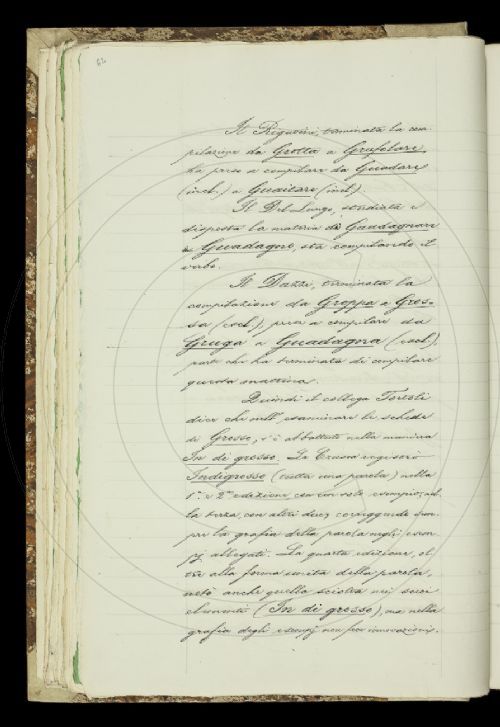 62
Il Rigutini, terminata la com-
pilazione da Grotta a Grufolare,
ha preso a compilare da Guadare
(incl.) a Guaitare (incl.).
Il Del Lungo, studiata e
disposta la materia di Guadagnare
e Guadagno, sta compilando il
verbo.
Il Dazzi, terminata la
compilazione da Groppa a Gros-
sa (escl.), prese a compilare da
Gruga a Guadagna (escl.),
parte che ha terminata di compilare
questa mattina.
Quindi il collega Tortoli
dice che nell'esaminare le schede
di Grosso, s'è abbattuto nella maniera
In di grosso. La Crusca registrò
Indigrosso (tutta una parola) nella
1ª e 2ª edizione con un solo esempio; nel-
la terza, con altri due, correggendo sem-
pre la grafia della parola negli esem-
pj allegati. La quarta edizione, ol-
tre alla forma unita della parola,
notò anche quella sciolta nei suoi
elementi (In di grosso), ma nella
grafia degli esempj non fece innovazioni.